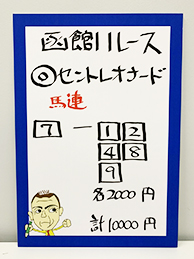 函館11レース
◎セントレオナード
馬連
7 ― 1 2
4 8
9
各2000円
計10000円